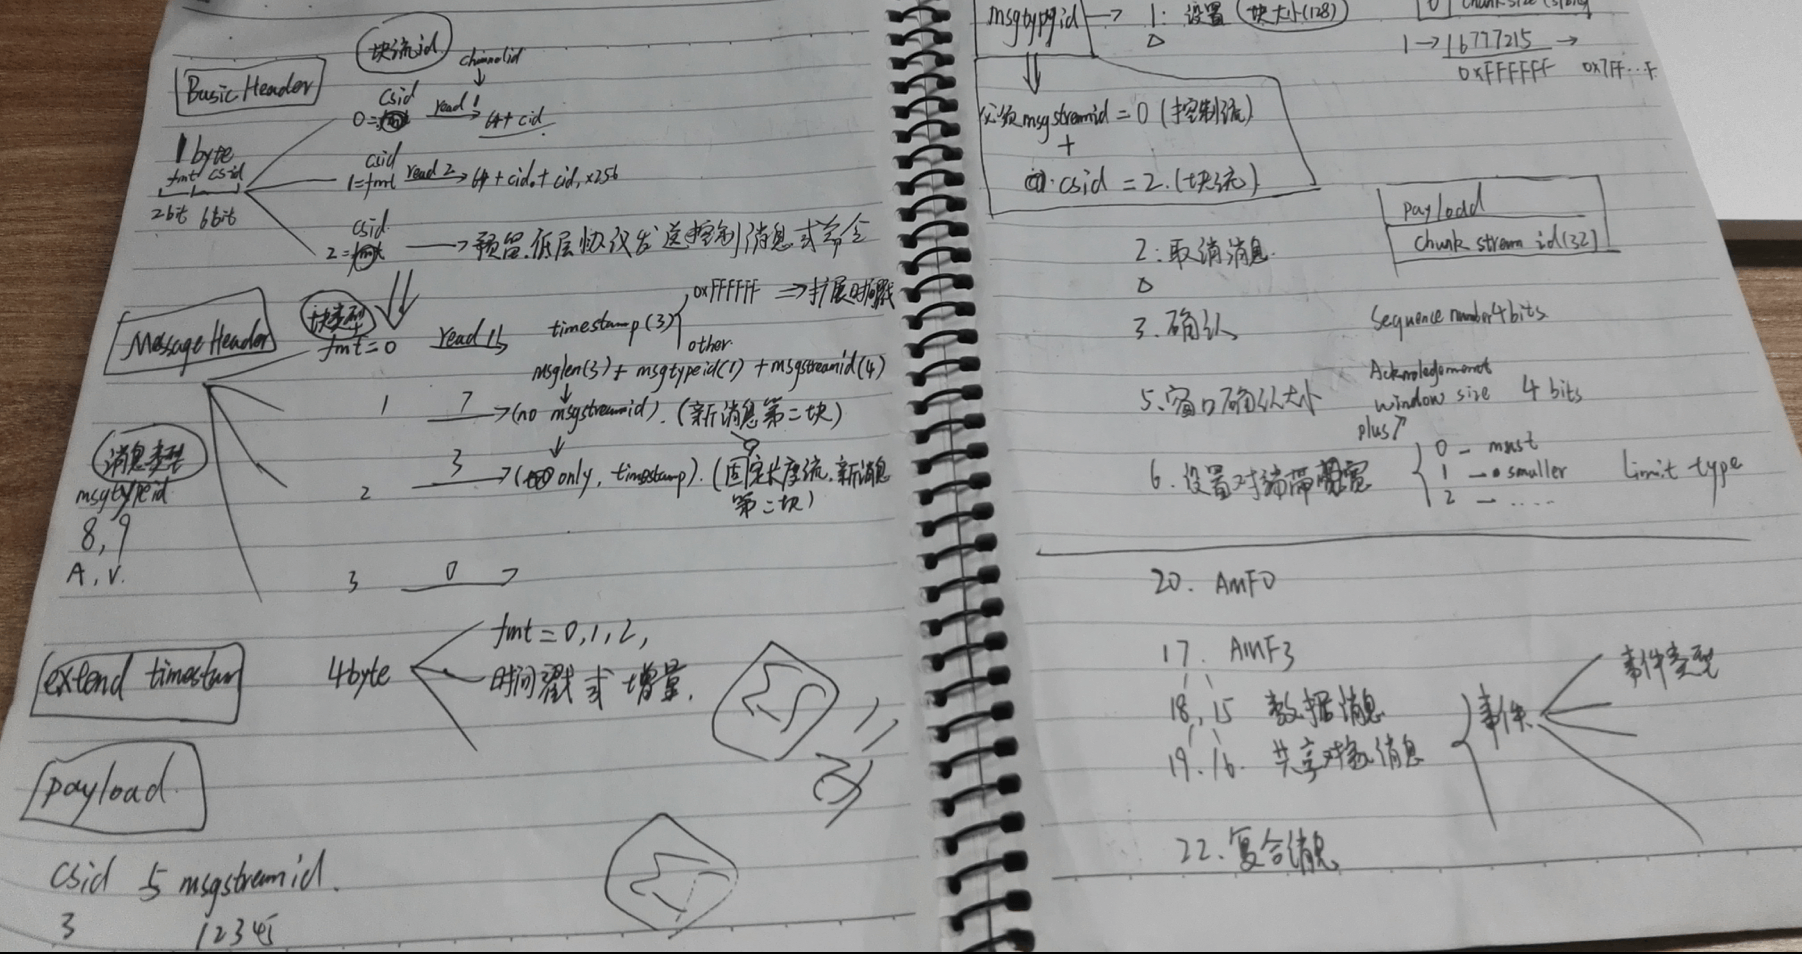 块流id
channelid
Basic Header
csid
0= read 1 64+cid
1 byte
fmt csid
2bit 6bit
csid
1=fmt read 2 64+cid0+cid1×256
csid
2= 预留低层协议发送控制消息或命令
Message Header
块类型
fmt=0 read 11 timestamp(3) 0xFFFFFF ⇒ 扩展时间戳
other
msglen(3)+msgtypeid(1)+msgstreamid(4)
1 7 (no msgstreamid).(新消息第二块)
消息类型
msgtypeid
8,9
A,V.
2 3 (only, timestamp).(固定长度流,新消息
第二块)
3 0
extend timestam
4byte
fmt=0,1,2,
时间戳或增量.
payload
csid 与 msgstreamid.
3 12345
msgtypeid → 1: 设置 块大小(128)
0 chunk size
1→16777215 →
0xFFFFFF 0x7FF…F
必须msgstreamid=0(控制流)
+
csid=2.(块流)
payload
chunk stream id(32)
2:取消消息.
3.确认 sequence number 4bits
5.窗口确认大小 Acknowledgement
window size 4 bits
plus↗
6.设置对端带宽
0 - must
1 - smaller
2 - ....
limit type
20. AMF0
17. AMF3
18,15 数据消息
19.16. 共享对象消息
事件
事件类型
22.复合消息